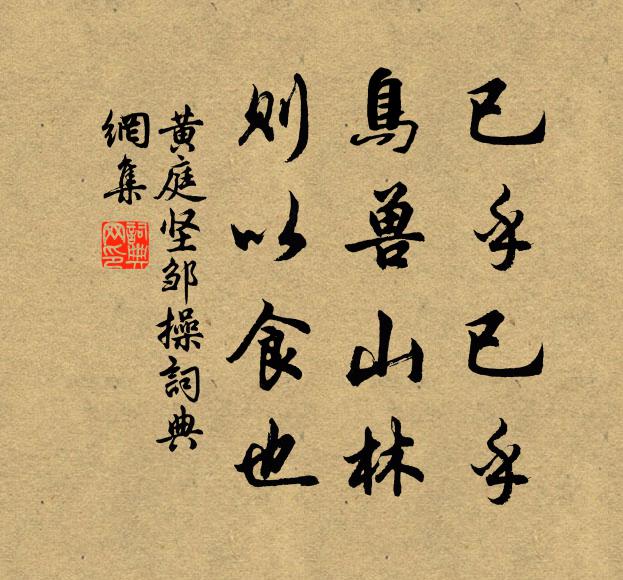 已乎已乎
鳥兽山林
則以食也
黄庭坚邹操詞典
網集
詞典
网印